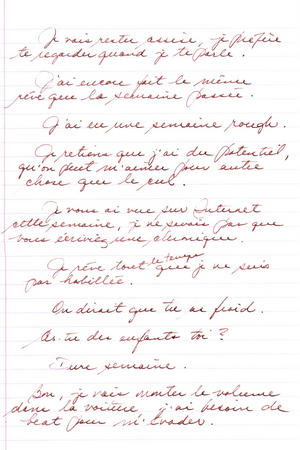 Je vais rester assise, je préfère
te regarder quand je te parle.
J'ai encore fait le même
rêve que la semaine passée.
J'ai eu une semaine rough.
Je retiens que j'ai du potentiel,
qu'on peut m'aimer pour autre
chose que le cul.
Je vous ai vue sur Internet
cette semaine, je ne savais pas que
vous écriviez une chronique.
Je rêve tout le temps que je ne suis
pas habillée.
On dirait que tu as froid.
As-tu des enfants toi?
Dure semaine.
Bon, je vais monter le volume
dans la voiture, j'ai besoin de
beat pour m'évader.